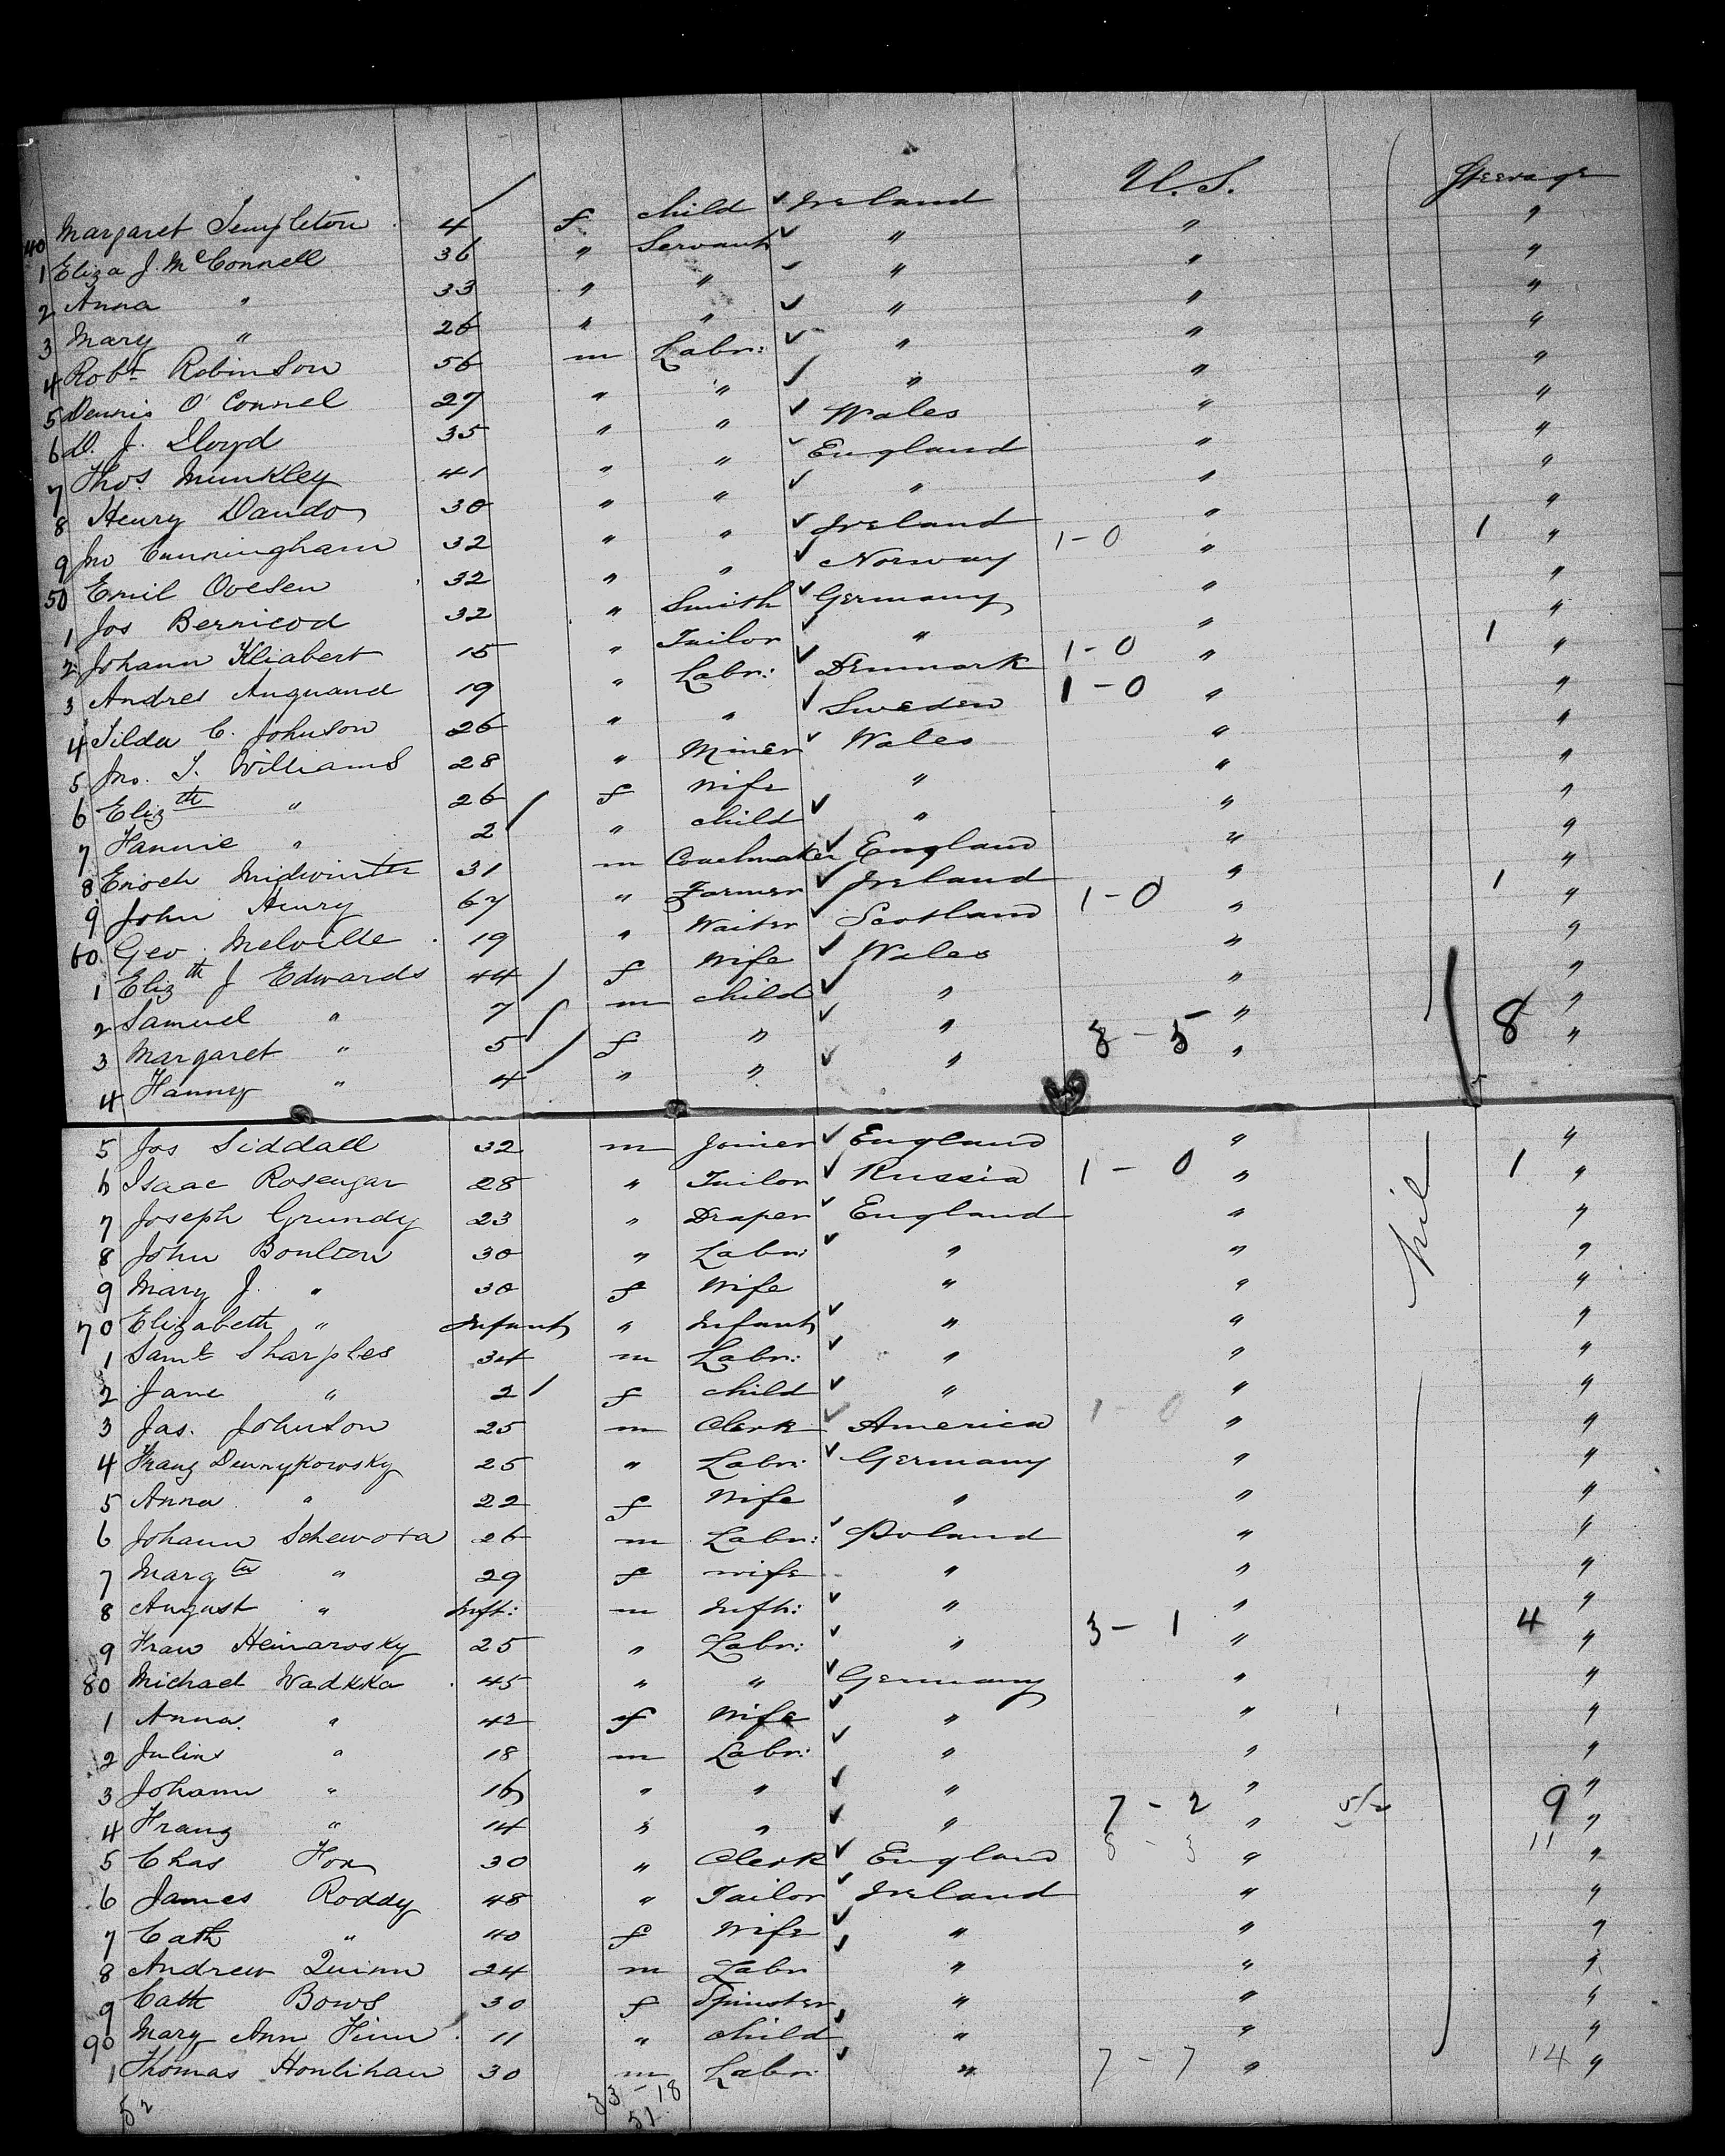 40 Margaret Templeton 4 / f child ✓ Ireland U. S. Steerage
1 Eliza J. McConnell 36 " Servant ✓ " " "
2 Anna " 33 " " ✓ " " "
3 Mary " 26 " " ✓ " " "
4 Robt Robinson 56 m Labr: ✓ " " "
5 Dennis O'Connel 27 " " ✓ " " "
6 D. J. Lloyd 35 " " ✓ Wales " "
7 Thos. Munkley 41 " " ✓ England " "
8 Henry Dando 30 " " ✓ " " "
9 Jno Cunningham 32 " " ✓ Ireland " "
50 Emil Ovesen 32 " " ✓ Norway 1-0 " 1 "
1 Jos Bernicod 32 " Smith ✓ Germany " "
2 Johann Kliabert 15 " Tailor ✓ " " "
3 Andres Anguand 19 " Labr: ✓ Denmark 1-0 " 1 "
4 Tilda C. Johnson 26 " " ✓ Sweden 1-0 " "
5 Jno. T. Williams 28 " Miner ✓ Wales " "
6 Elizth " 26 f Wife " " "
7 Fannie " 2 / " child ✓ " " "
8 Enoch Midwinter 31 m Coachmaker ✓ England " "
9 John Henry 67 " Farmer ✓ Ireland " "
60 Geo. Melville 19 " Waiter ✓ Scotland 1-0 " 1 "
1 Elizth J Edwards 44 / f Wife ✓ Wales " "
2 Samuel " 7 / m child ✓ " " "
3 Margaret " 5 / f " ✓ " " "
4 Fanny " 4 " " ✓ " 3-5 " 8 "
5 Jos Siddall 32 m Joiner ✓ England " "
6 Isaac Rosengar 28 " Tailor ✓ Russia 1-0 " 1 "
7 Joseph Grundy 23 " Draper ✓ England " nil "
8 John Boulton 30 " Labr: ✓ " " "
9 Mary J. " 30 f Wife " " "
70 Elizabeth " Infant " Infant ✓ " " "
1 Saml Sharples 34 m Labr: ✓ " " "
2 Jane " 2 / f child ✓ " " "
3 Jas. Johnson 25 m Clerk ✓ America 1-0 " "
4 Franz Dennykowsky 25 " Labr: ✓ Germany " "
5 Anna " 22 f Wife " " "
6 Johann Schewora 26 m Labr: ✓ Poland " "
7 Margth " 29 f wife " " "
8 August " Inft: m Inft: ✓ " " "
9 Fraw Heinarosky 25 " Labr: ✓ " 3-1 " 4 "
80 Michael Wadkka 45 " " ✓ Germany " "
1 Anna " 42 f Wife ✓ " " "
2 Julius " 18 m Labr: ✓ " " "
3 Johann " 16 " " ✓ " " "
4 Franz " 14 " " ✓ " 7-2 " 5/2 9 "
5 Chas Fox 30 " Clerk ✓ England 8-3 " 11 "
6 James Roddy 48 " Tailor ✓ Ireland " "
7 Cath " 40 f Wife ✓ " " "
8 Andrew Quinn 24 m Labr ✓ " " "
9 Cath Bows 30 f Spinster " " "
90 Mary Ann Finn 11 " child ✓ " " "
1 Thomas Honlihan 30 m Labr: ✓ " 7-7 " 14 "
52 33-18
51